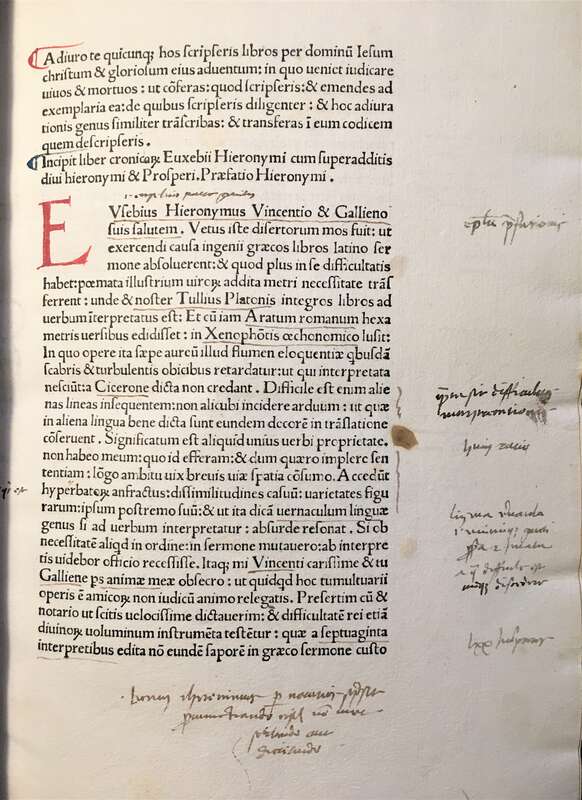 Adiuro te quicunq; hos scripseris libros per dominū Iesum
christum & gloriosum eius aduentum: in quo ueniet iudicare
uiuos & mortuos: ut cōferas: quod scripseris: & emendes ad
exemplaria ea: de quibus scripseris diligenter: & hoc adiura
tionis genus similiter trāscribas: & transferas ī eum codicem
quem descripseris.
Incipit liber cronicaꝝ Euxebii Hieronymi cum superadditis
diui hieronymi & Prosperi. Præfatio Hieronymi.
EVsebius Hieronymus Vincentio & Gallieno
suis salutem. Vetus iste disertorum mos fuit: ut
exercendi causa ingenii græcos libros latino ser
mone absoluerent: & quod plus in se difficultatis
habet: poemata illustrium uiroꝝ addita metri necessitate trās
ferrent: unde & noster Tullius Platonis integros libros ad
uerbum īterpretatus est: Et cū iam Aratum romanum hexa
metris uersibus edidisset: in Xenophōtis œchonomico lusit:
In quo opere ita sæpe aureū illud flumen eloquentiæ qbusdā
scabris & turbulentis obicibus retardatur: ut qui interpretata
nesciūt: a Cicerone dicta non credant. Difficile est enim alie
nas lineas insequentem: non alicubi incidere arduum: ut quæ
in aliena lingua bene dicta sunt eundem decorē in trāslatione
cōseruent. Significatum est aliquid unius uerbi proprietate.
non habeo meum: quo id efferam: & dum quæro implere sen
tentiam: lōgo ambitu uix breuis uiæ spatia cōsumo. Accedūt
hyperbatoꝝ anfractus: dissimilitudines casuū: uarietates figu
rarum: ipsum postremo suū: & ut ita dicā uernaculum linguæ
genus si ad uerbum interpretatur: absurde resonat. Si ob
necessitatē aliqd in ordine: in sermone mutauero: ab interpre
tis uidebor officio recessisse. Itaq; mi Vincenti carissime & tu
Galliene ps animæ meæ obsecro: ut quidqd hoc tumultuarii
operis ē amicoꝝ non iudicū animo relegatis. Presertim cū &
notario ut scitis uelocissime dictauerim: & difficultatē rei etiā
diuinoꝝ uoluminum instrumēta testētur: quæ a septuaginta
interpretibus edita nō eundē saporē in græco sermone custo